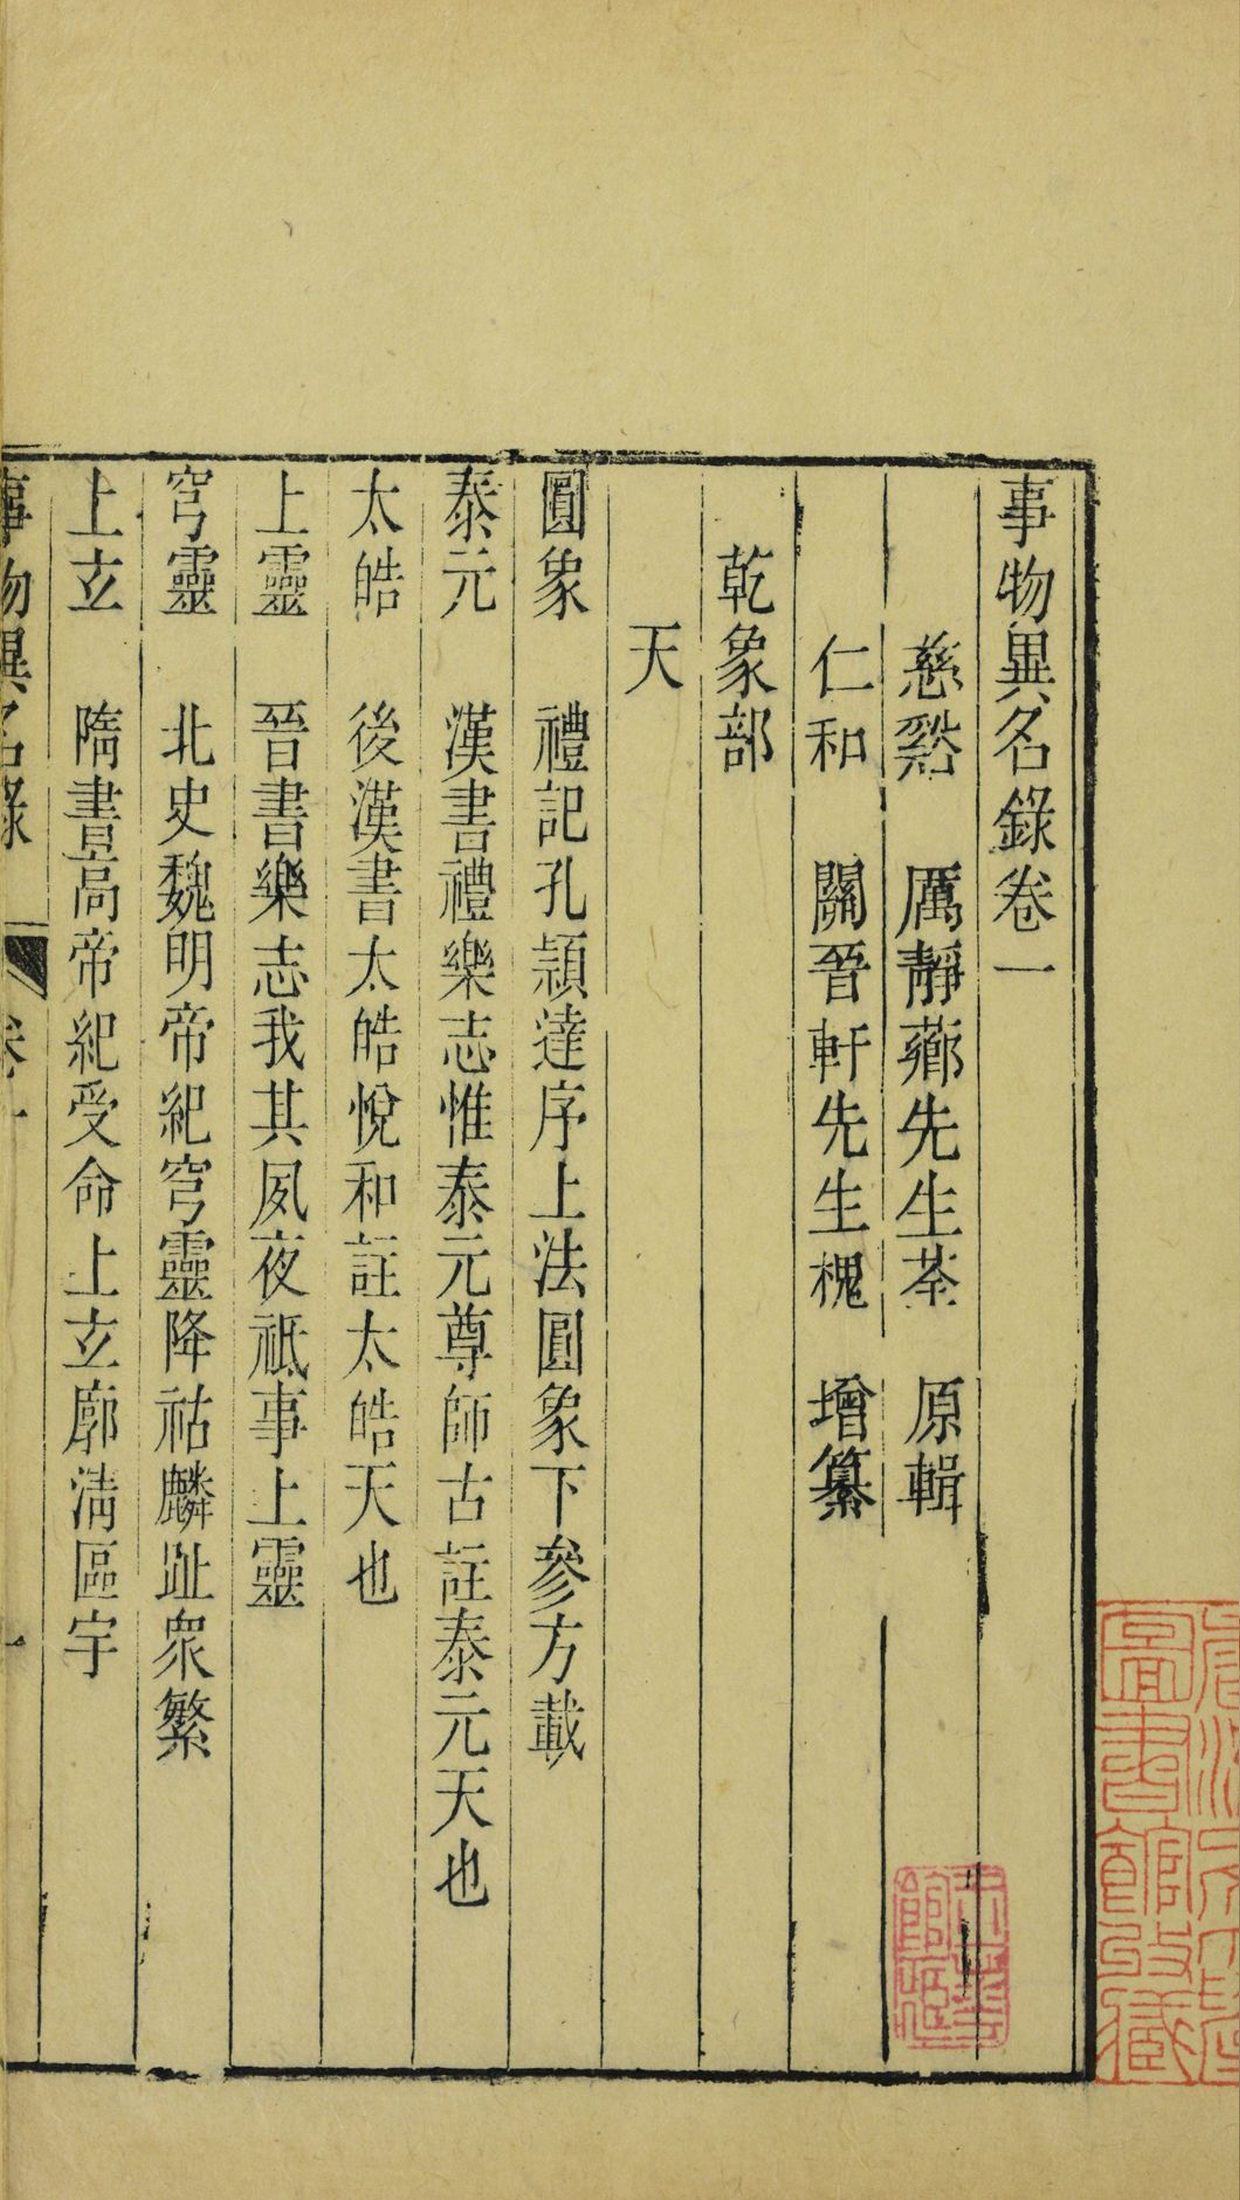 事物異名錄卷一
慈谿 厲靜薌先生荃 原輯
仁和 關晉軒先生槐 增纂
乾象部
天
圓象 禮記孔頴達序上法圓象下參方載
泰元 漢書禮樂志惟泰元尊師古註泰元天也
太皓 後漢書太皓悅和註太皓天也
上靈 晉書樂志我其夙夜祗事上靈
穹靈 北史魏明帝紀穹靈降祜麟趾衆繁
上玄 隋書高帝紀受命上玄廓淸區宇
事物異名錄 卷一 一
圖書館攷藏